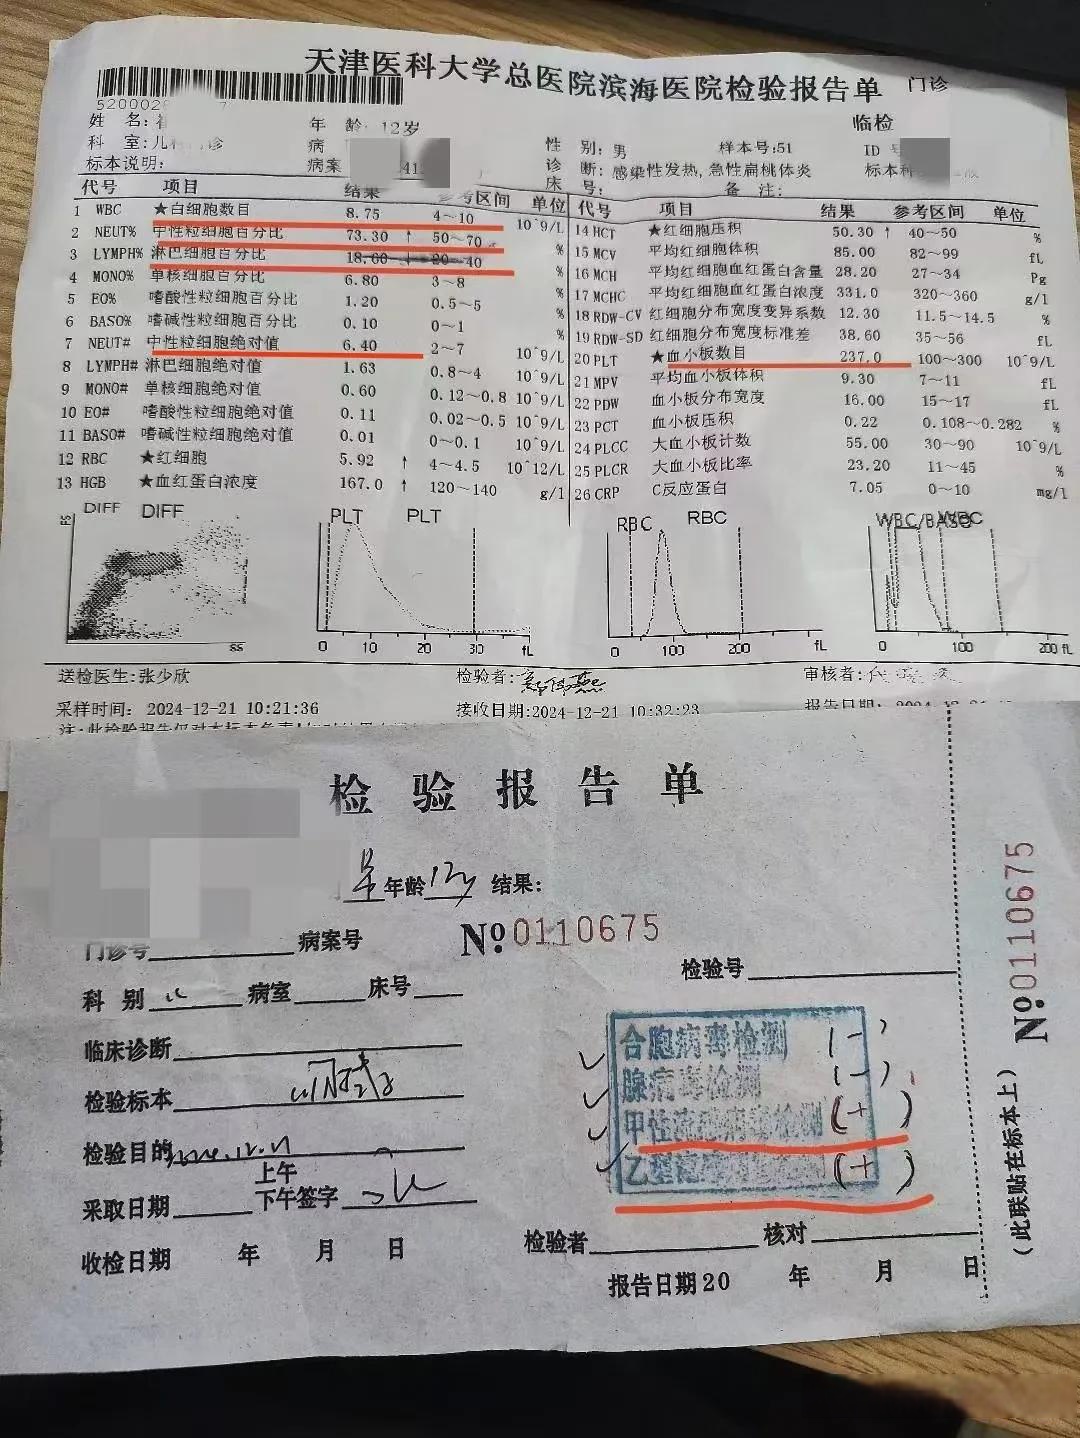 天津医科大学总医院滨海医院检验报告单 门诊
姓 名: 年 龄: 12岁 临检
科 室: 性 别: 男 样本号:51 ID
标本说明: 病案 诊 断: 感染性发热, 急性扁桃体炎 标本种
床 号: 备 注:
代号 项目 结果 参考区间 单位
1 WBC ★白细胞数目 8.75 4~10 10^9/L
2 NEUT% 中性粒细胞百分比 73.30 ↑ 50~70 %
3 LYMPH% 淋巴细胞百分比 18.60 ↓ 20~40 %
4 MONO% 单核细胞百分比 6.80 3~8 %
5 EO% 嗜酸性粒细胞百分比 1.20 0.5~5 %
6 BASO% 嗜碱性粒细胞百分比 0.10 0~1 %
7 NEUT# 中性粒细胞绝对值 6.40 2~7 10^9/L
8 LYMPH# 淋巴细胞绝对值 1.63 0.8~4 10^9/L
9 MONO# 单核细胞绝对值 0.60 0.12~0.8 10^9/L
10 EO# 嗜酸性粒细胞绝对值 0.11 0.02~0.5 10^9/L
11 BASO# 嗜碱性粒细胞绝对值 0.01 0~0.1 10^9/L
12 RBC ★红细胞 5.92 ↑ 4~4.5 10^12/L
13 HGB ★血红蛋白浓度 167.0 ↑ 120~140 g/l
代号 项目 结果 参考区间 单位
14 HCT ★红细胞压积 50.30 ↑ 40~50 %
15 MCV 平均红细胞体积 85.00 82~99 fL
16 MCH 平均红细胞血红蛋白含量 28.20 27~34 Pg
17 MCHC 平均红细胞血红蛋白浓度 331.0 320~360 g/l
18 RDW-CV 红细胞分布宽度变异系数 12.30 11.5~14.5 %
19 RDW-SD 红细胞分布宽度标准差 38.60 35~56 fL
20 PLT ★血小板数目 237.0 100~300 10^9/L
21 MPV 平均血小板体积 9.30 7~11 fL
22 PDW 血小板分布宽度 16.00 15~17 fL
23 PCT 血小板压积 0.22 0.108~0.282 %
24 PLCC 大血小板计数 55.00 30~90 10^9/L
25 PLCR 大血小板比率 23.20 11~45 %
26 CRP C反应蛋白 7.05 0~10 mg/l
DIFF DIFF PLT PLT RBC RBC WBC/BASO WBC
FS
SS 0 10 20 30 fL 0 100 200 fL 0 100 200 fL
送检医生:张少欣 检验者: 审核者:
采样时间: 2024-12-21 10:21:36 接收日期:2024-12-21 10:32:23 报告日期:
检验报告单
年龄 12y 结果:
门诊号 病案号 № 0110675
检验号
科 别 儿 病室 床号
临床诊断
检验标本
检验目的
上午
采取日期 下午签字
收检日期 年 月 日
合胞病毒检测 (-)
腺病毒检测 (-)
甲性流感病毒检测 (+)
乙型 (+)
检验者 核对
报告日期20 年 月 日
№ 0110675
(此联贴在标本上)